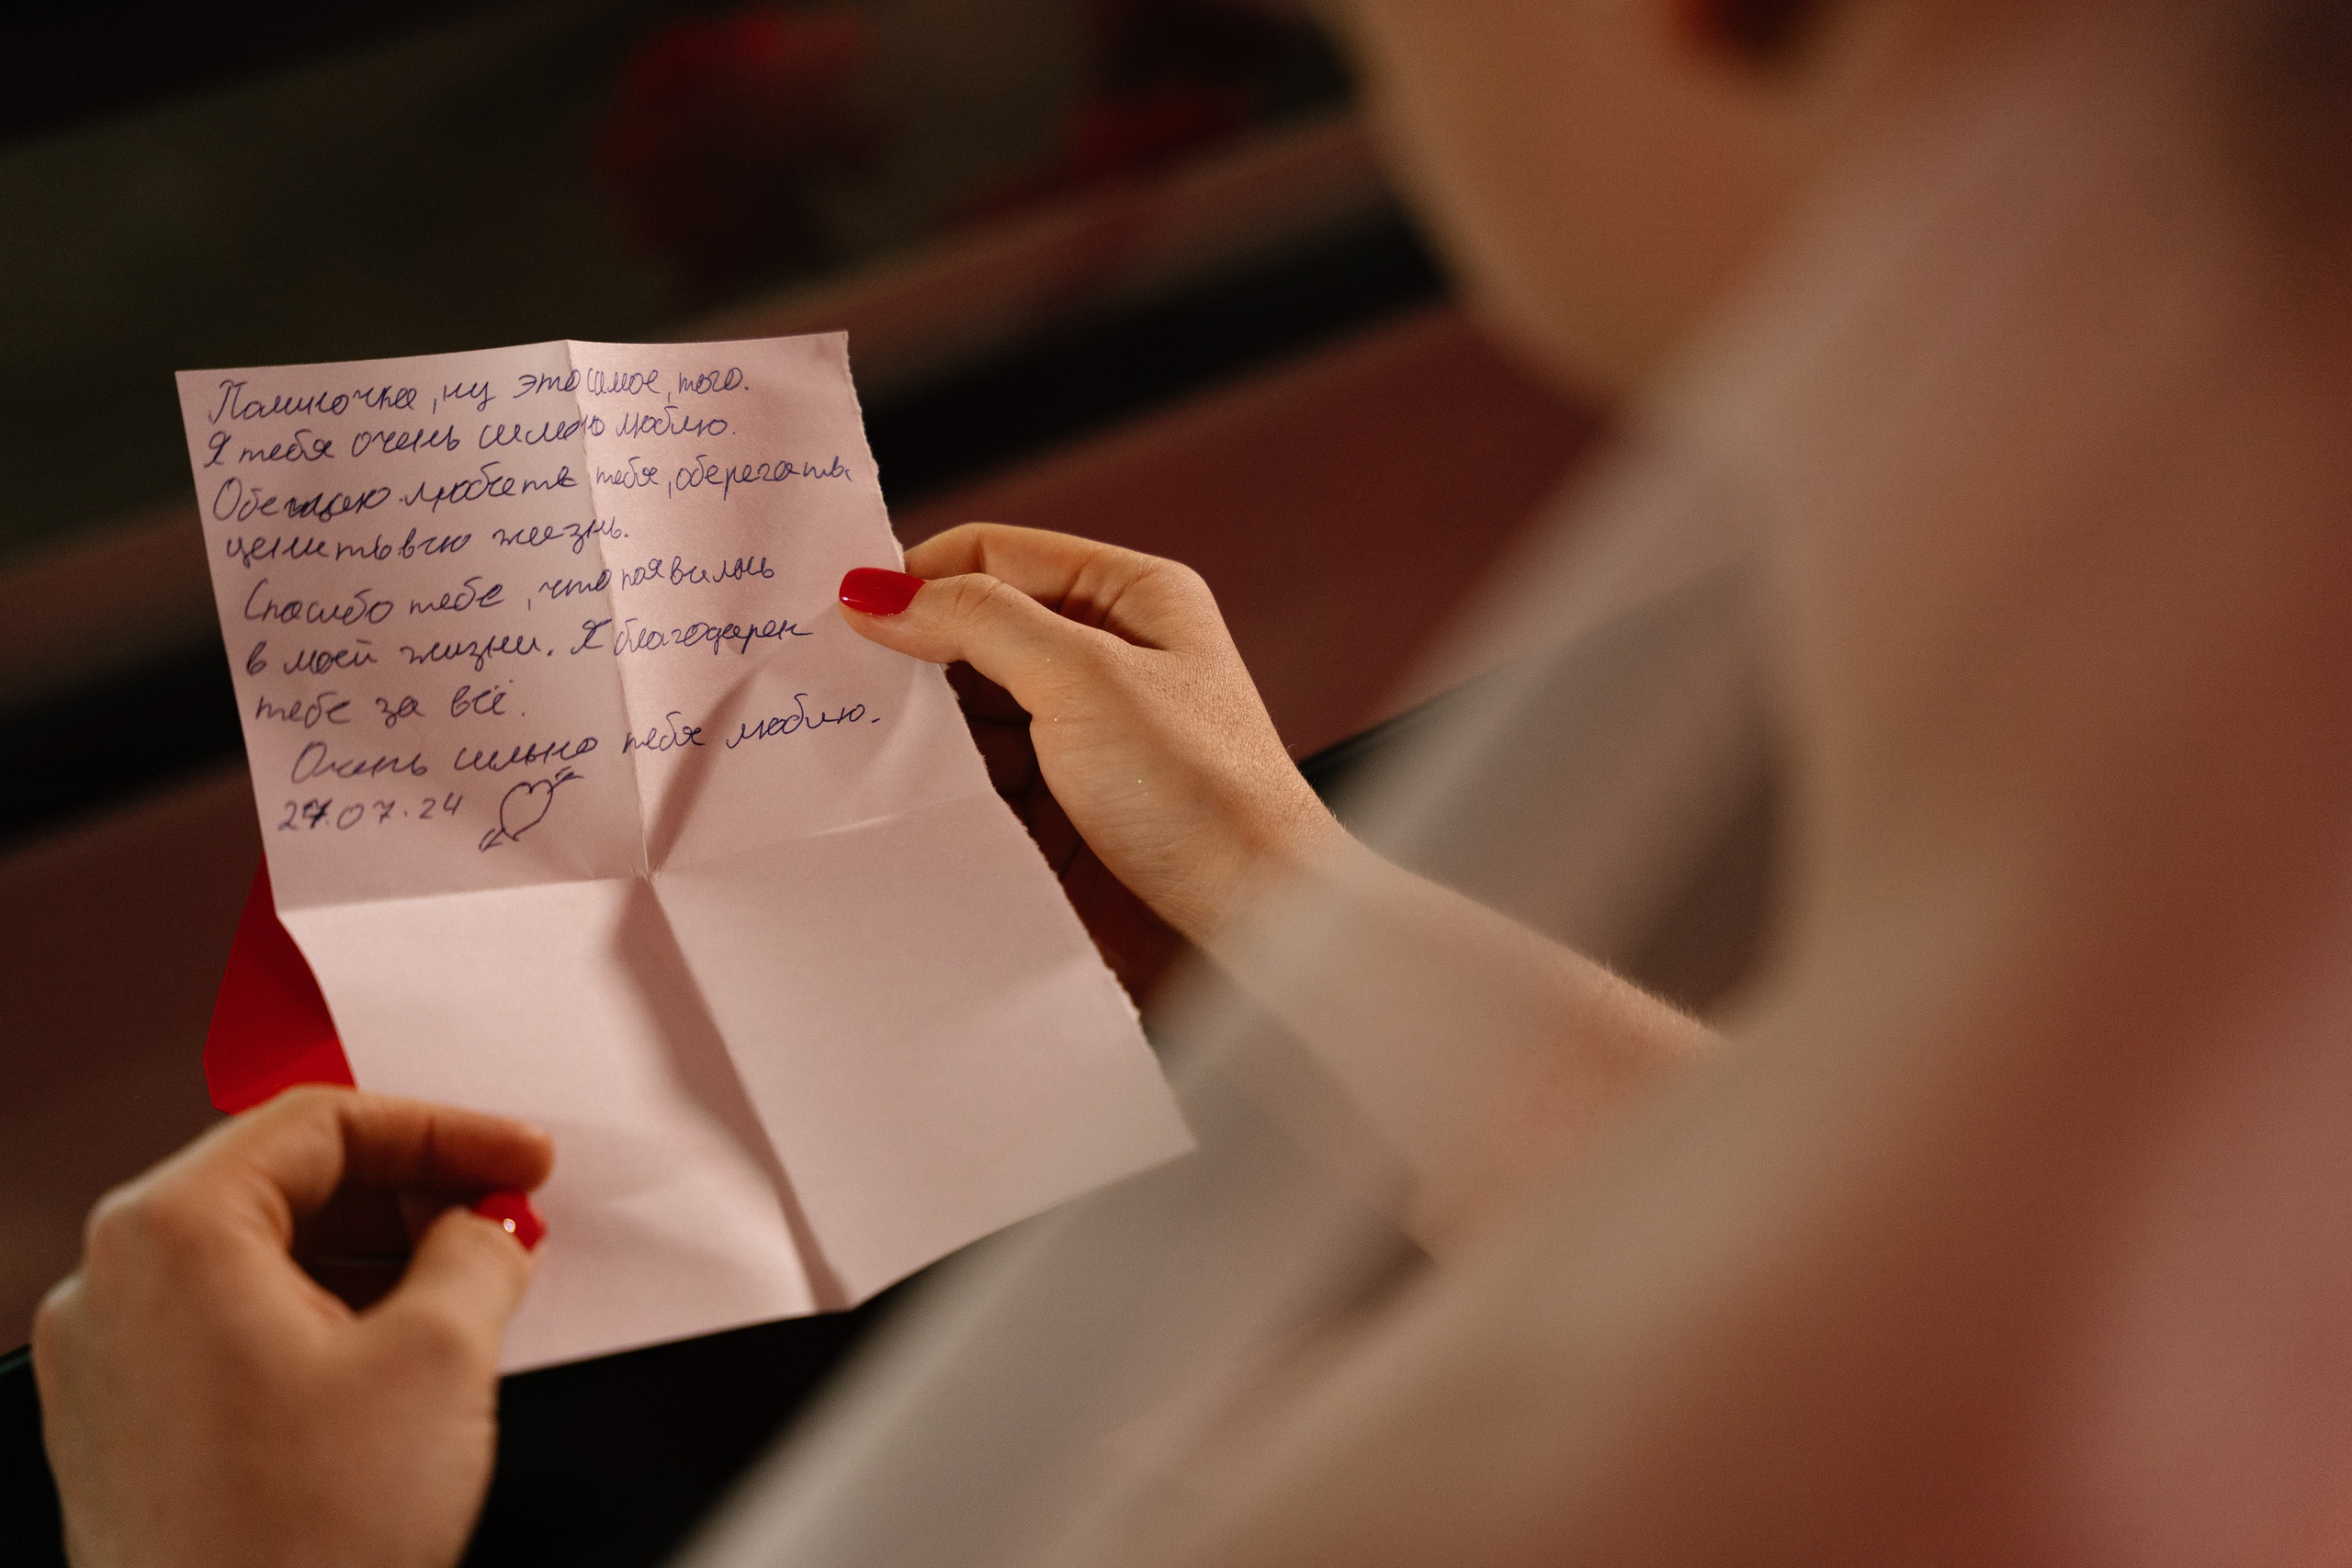 Полиночка, ну это самое, того.
Я тебя очень сильно люблю.
Обещаю любить тебя, оберегать
ценить всю жизнь.
Спасибо тебе, что появилась
в моей жизни. Я благодарен
тебе за всё.
Очень сильно тебя люблю.
27.07.24